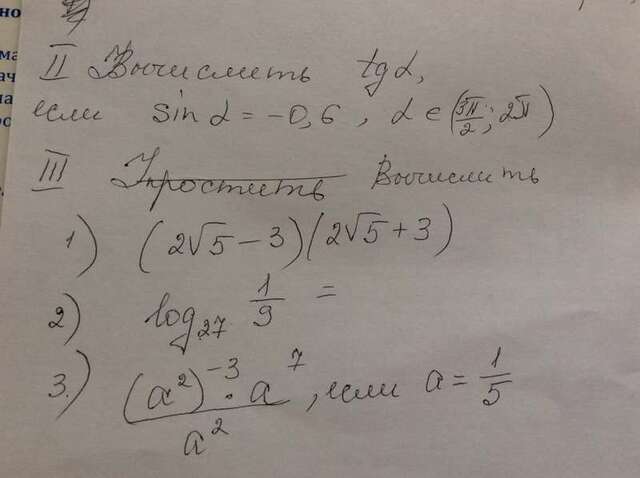 но
II Вычислить tg α,
если sin α = -0,6, α ∈ (3π/2; 2π)
III Упростить Вычислить
1) (2√5 - 3)(2√5 + 3)
2) log₂₇ 1/9 =
3.) (a²)⁻³ · a⁷ / a², если a = 1/5